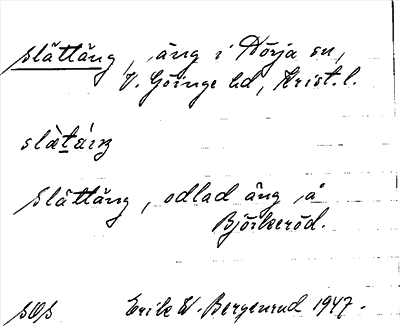 Slättäng, äng i Nörja sn,
V. Göinge hd, Krist. l.
slàtæŋ
Slättäng, odlad äng å
Björkeröd.
Erik W. Bergenrud 1947.